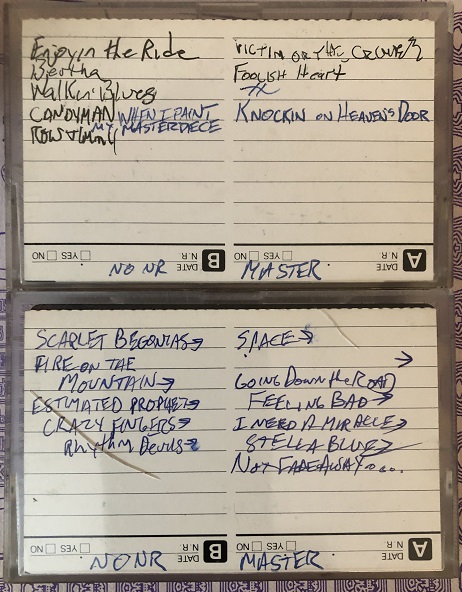 Enjoyin the Ride
Bertha
Walkin' Blues
CANDYMAN WHEN I PAINT
MY MASTERPIECE
VICTIM OR THE CROWD
FOOLISH HEART
KNOCKIN ON HEAVEN'S DOOR
NO YES N.R. DATE B
NO NR
NO YES N.R. DATE A
MASTER
SCARLET BEGONIAS→
FIRE ON THE
MOUNTAIN→
ESTIMATED PROPHET→
CRAZY FINGERS→
Rhythm Devils→
SPACE→
→
GOING DOWN the ROAD
FEELING BAD→
I NEED A MIRACLE→
STELLA BLUE→
NOT FADE AWAY....
NO YES N.R. DATE B
NO NR
NO YES N.R. DATE A
MASTER